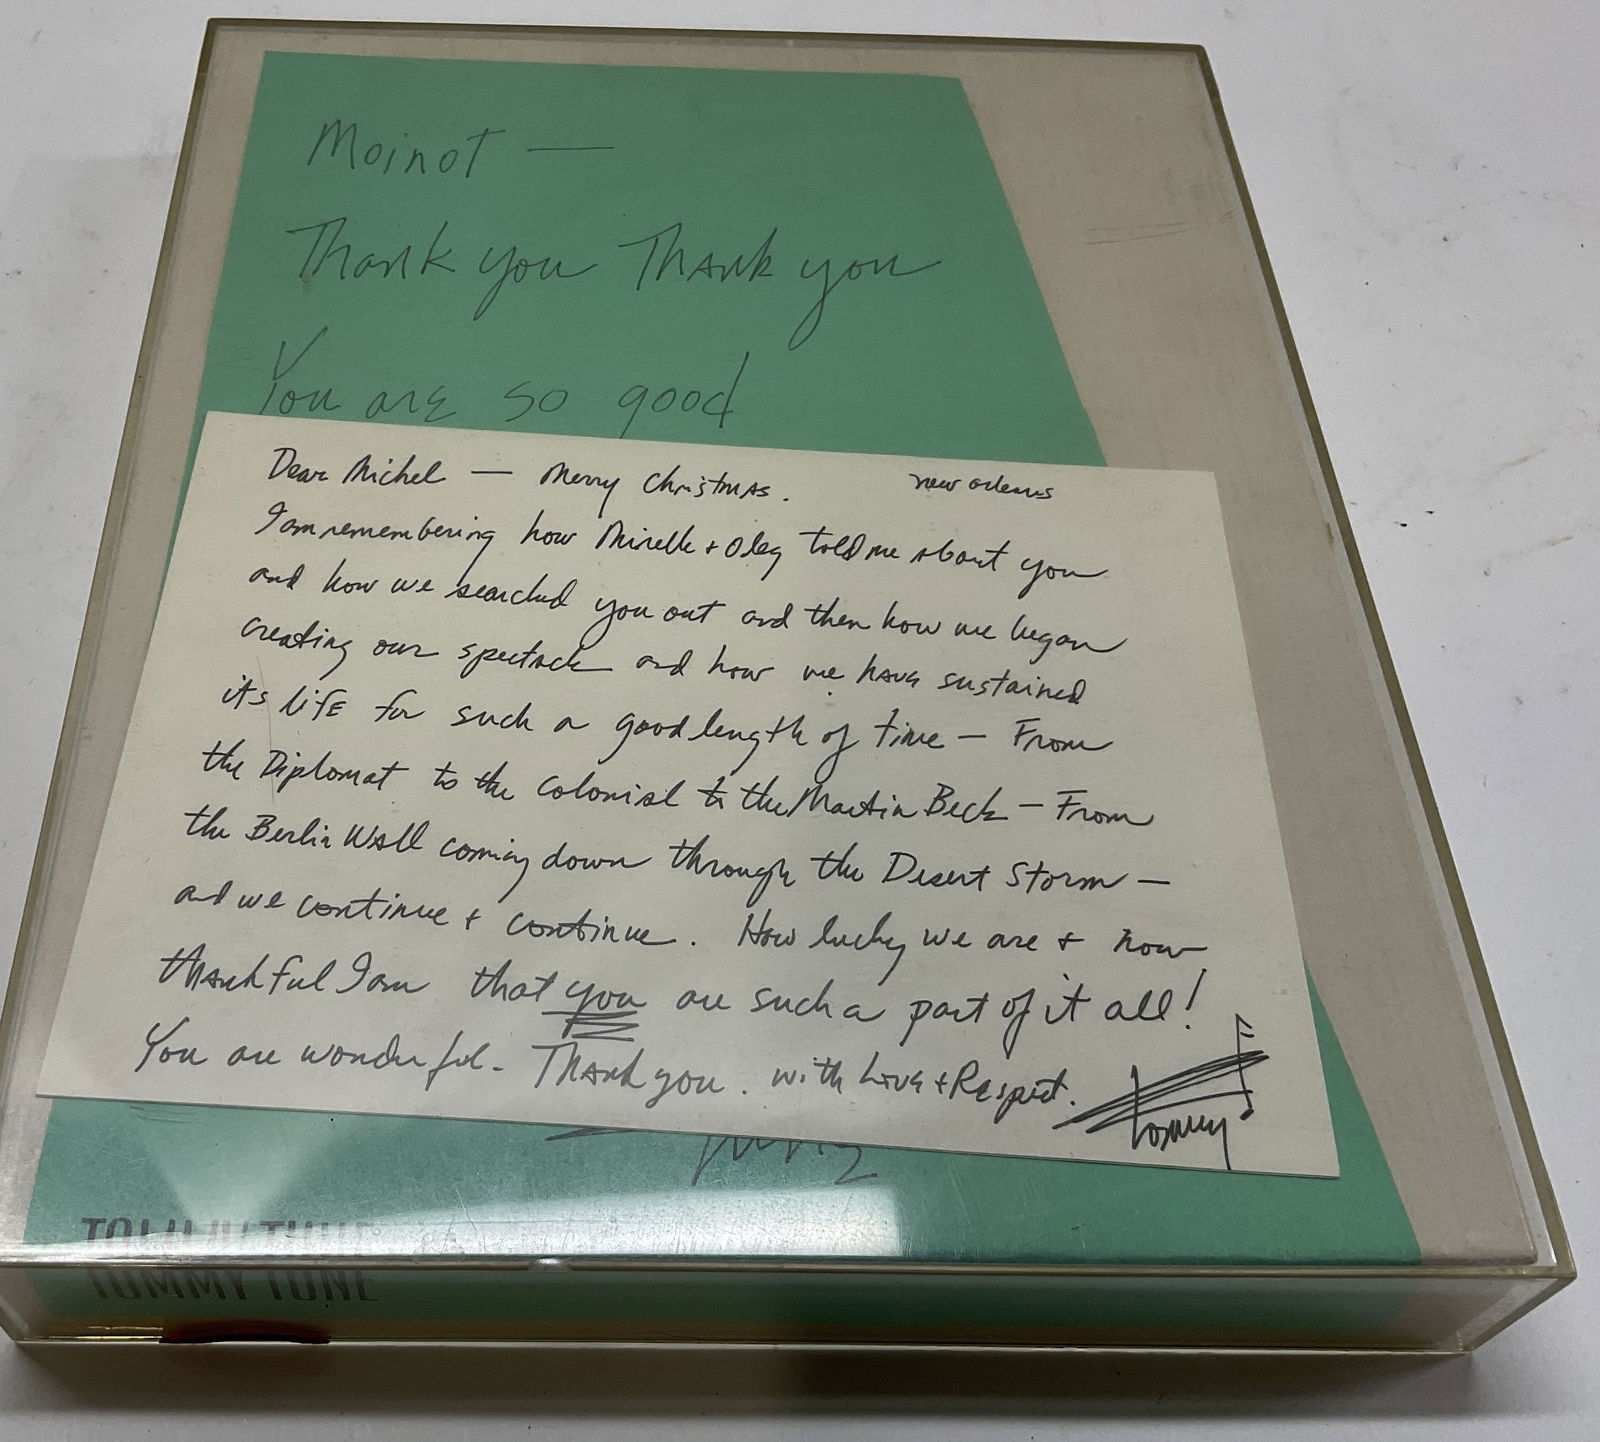 Moinot —
Thank you Thank you
You are so good
Dear Michel — Merry Christmas. New Orleans
I am remembering how Mirelle + Oleg told me about you
and how we searched you out and then how we began
creating our spectacle and how we have sustained
its life for such a good length of time — From
the Diplomat to the Colonial to the Martin Beck — From
the Berlin Wall coming down through the Desert Storm —
and we continue + continue. How lucky we are + how
thankful I am that you are such a part of it all!
You are wonderful. Thank you. with Love + Respect.
Tommy
TOMMY TUNE